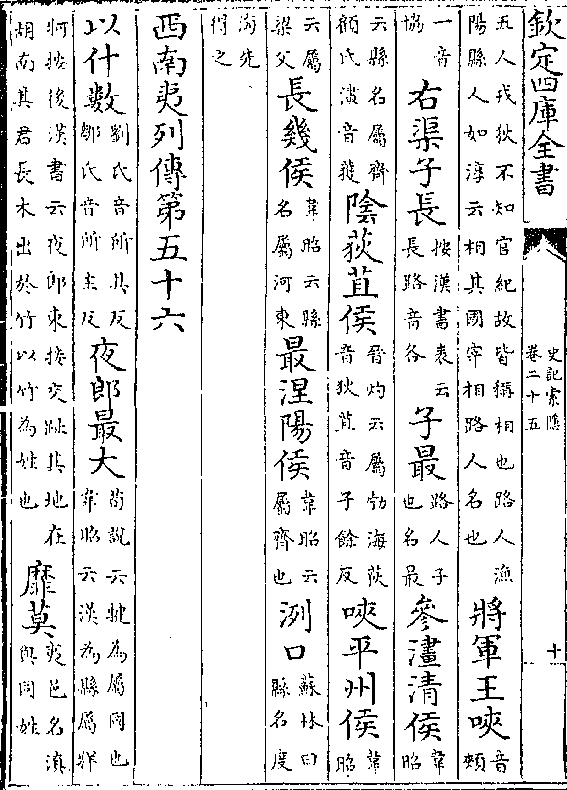 欽定四庫全書 史記索隱 卷二十五 十
五人戎狄不知官紀故皆稱相也路人漁陽縣人如淳云相其國宰相路人名也 將軍王唊 音頰
一音協 右渠子長 按漢書表云長路音各 子最 路人子也名最 參澅清侯 韋昭
云縣名屬齊顧氏澅音獲 陰荻苴侯 晉灼云屬勃海荻音狄苴音子餘反 唊平州侯 韋昭
云屬梁父 長幾侯 韋昭云縣名屬河東 最涅陽侯 韋昭云屬齊也 洌口 蘇林曰縣名度
海先得之
西南夷列傳第五十六
以什數 劉氏音所具反鄒氏音所主反 夜郎最大 荀說云犍為屬國也韋昭云漢為縣屬牂
牁按後漢書云夜郎東接交趾其地在胡南其君長木出於竹以竹為姓也 靡莫 夷邑名滇與同姓